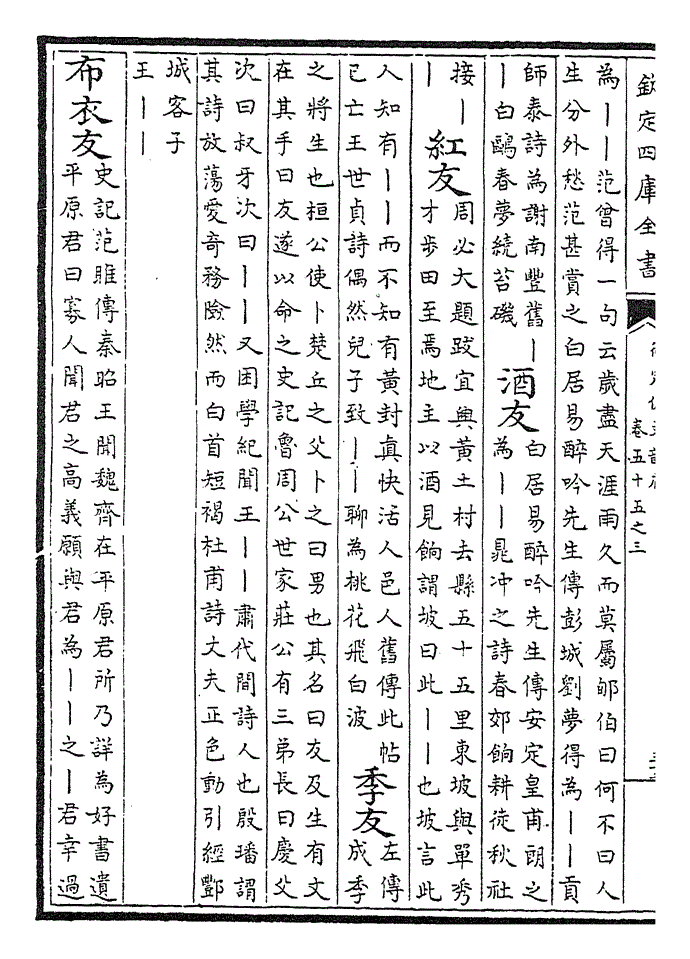 欽定四庫全書
卷五十五之三
為丨丨范曾得一句云歲盡天涯雨久而莫屬郇伯曰何不曰人
生分外愁范甚賞之白居易醉吟先生傳彭城劉夢得為丨丨貢
師泰詩為謝南豐舊丨
丨白鷗春夢繞苔磯
酒友
白居易醉吟先生傳安定皇甫朗之
為丨丨晁冲之詩春郊餉耕徒秋社
接丨
丨
紅友
周必大題跋宜興黃土村去縣五十五里東坡與單秀
才步田至焉地主以酒見餉謂坡曰此丨丨也坡言此
人知有丨丨而不知有黃封真快活人邑人舊傳此帖
已亡王世貞詩偶然兒子致丨丨聊為桃花飛白波
季友
左傳
成季
之將生也桓公使卜楚丘之父卜之曰男也其名曰友及生有文
在其手曰友遂以命之史記魯周公世家莊公有三弟長曰慶父
次曰叔牙次曰丨丨又困學紀聞王丨丨肅代間詩人也殷璠謂
其詩放蕩愛奇務險然而白首短褐杜甫詩丈夫正色動引經酆
城客子
王丨丨
布衣友
史記范雎傳秦昭王聞魏齊在平原君所乃詳為好書遺
平原君曰寡人聞君之高義願與君為丨丨之丨君幸過